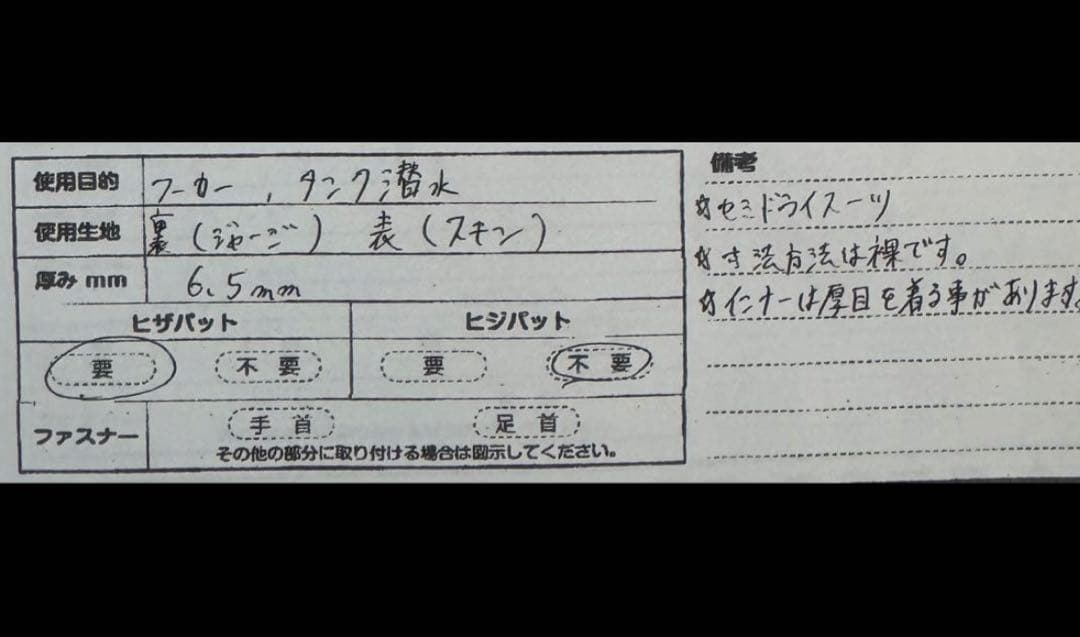 使用目的 フーカー , タンク潜水
使用生地 裏 (ジャージ) 表 (スキン)
厚み mm 6.5mm
ヒザパット ヒジパット
要 不要 要 不要
ファスナー 手首 足首
その他の部分に取り付ける場合は図示してください。
備考
☆セミドライスーツ
☆寸法方法は裸です。
☆インナーは厚目を着る事があります。